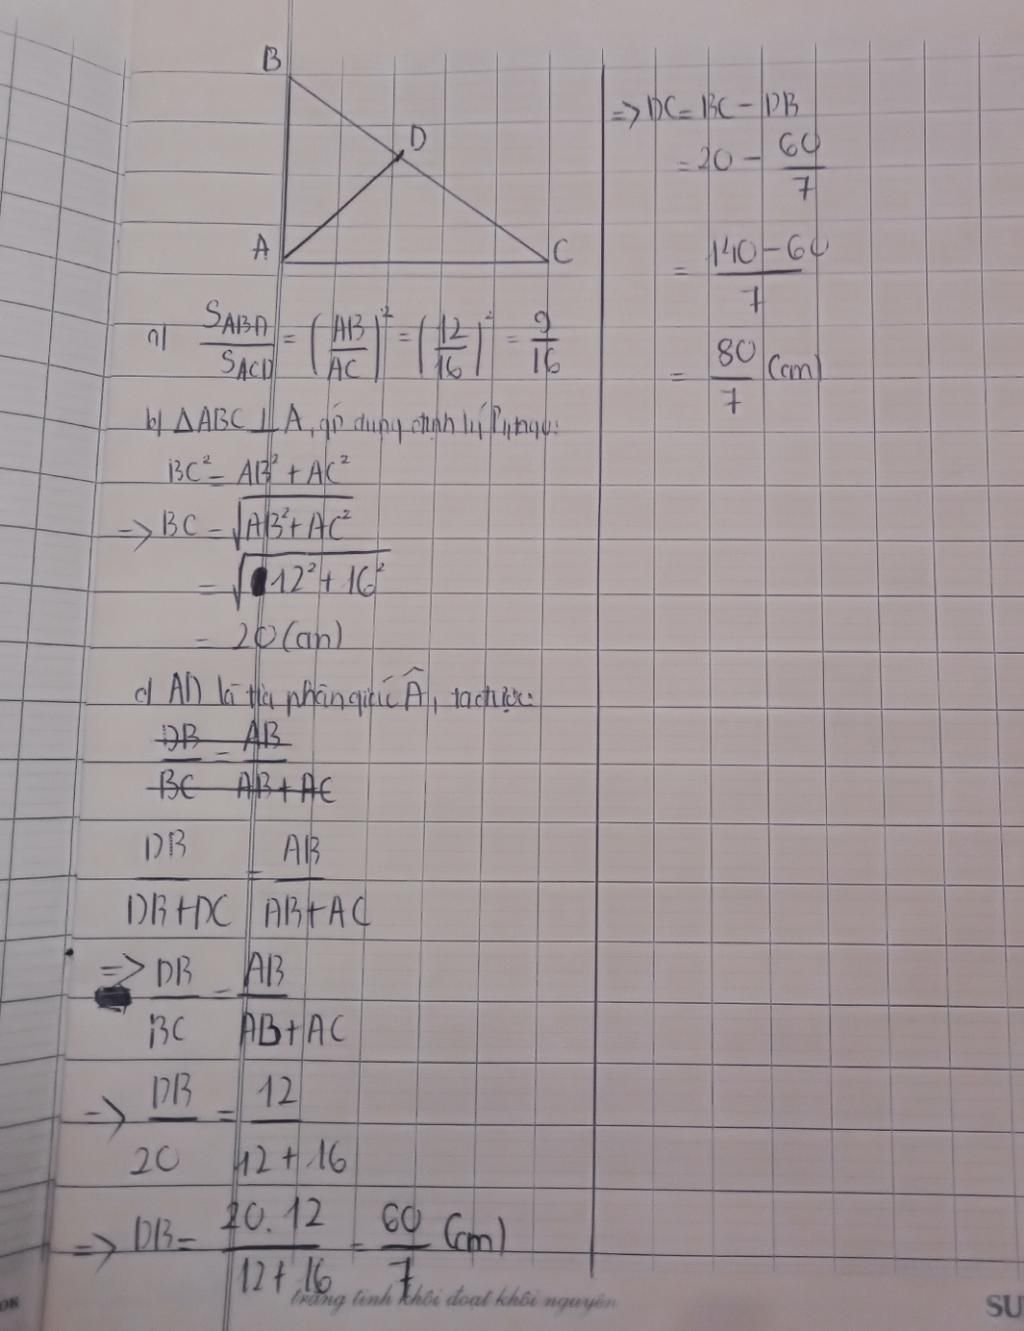 B
D
A
C
a) S_ABD / S_ACD = (AB/AC)² = (12/16)² = 9/16
b) ΔABC ⊥ A, áp dụng định lí Pytago:
BC² = AB² + AC²
=> BC = √(AB² + AC²)
= √(12² + 16²)
= 20 (cm)
c) AD là tia phân giác Â, ta được:
DB/BC = AB/(AB + AC)
DB/(DB + DC) = AB/(AB + AC)
=> DB/BC = AB/(AB + AC)
=> DB/20 = 12/(12 + 16)
=> DB = (20.12)/(12 + 16) = 60/7 (cm)
=> DC = BC - DB
= 20 - 60/7
= (140 - 60)/7
= 80/7 (cm)
trắng tinh khôi đoạt khôi nguyên
SU